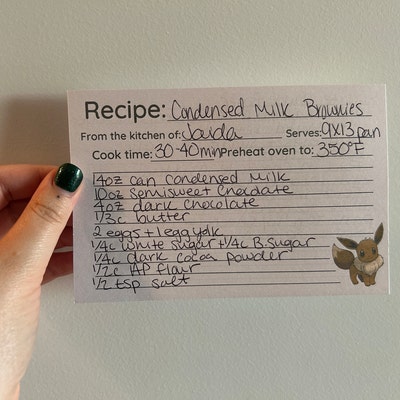 Recipe: Condensed Milk Brownies
From the kitchen of: Jaida Serves: 9X13 pan
Cook time: 30-40 min Preheat oven to: 350°F
14oz can condensed milk
10oz semisweet chocolate
4oz dark chocolate
1/3c butter
2 eggs + 1 egg yolk
1/4c white sugar + 1/4c B.Sugar
1/4c dark cocoa powder
1/2c AP flour
1/2 tsp salt